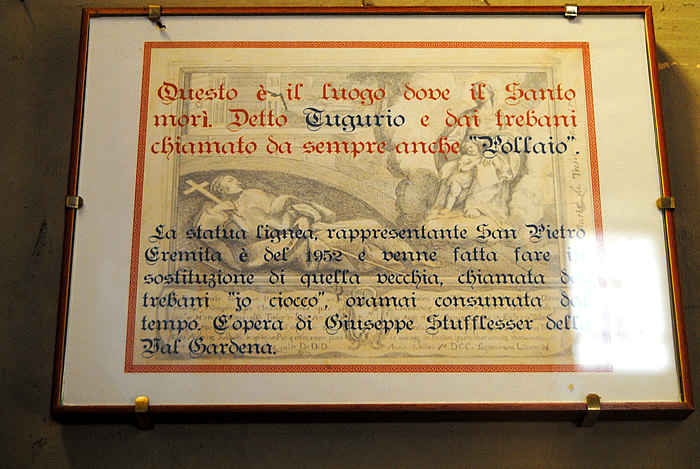 Questo è il luogo dove il Santo
morì. Detto Tugurio e dai trebani
chiamato da sempre anche "Pollaio".
La statua lignea, rappresentante San Pietro
Eremita è del 1952 e venne fatta fare in
sostituzione di quella vecchia, chiamata dai
trebani "jo ciocco", oramai consumata dal
tempo. E'opera di Giuseppe Stufflesser della
Val Gardena.